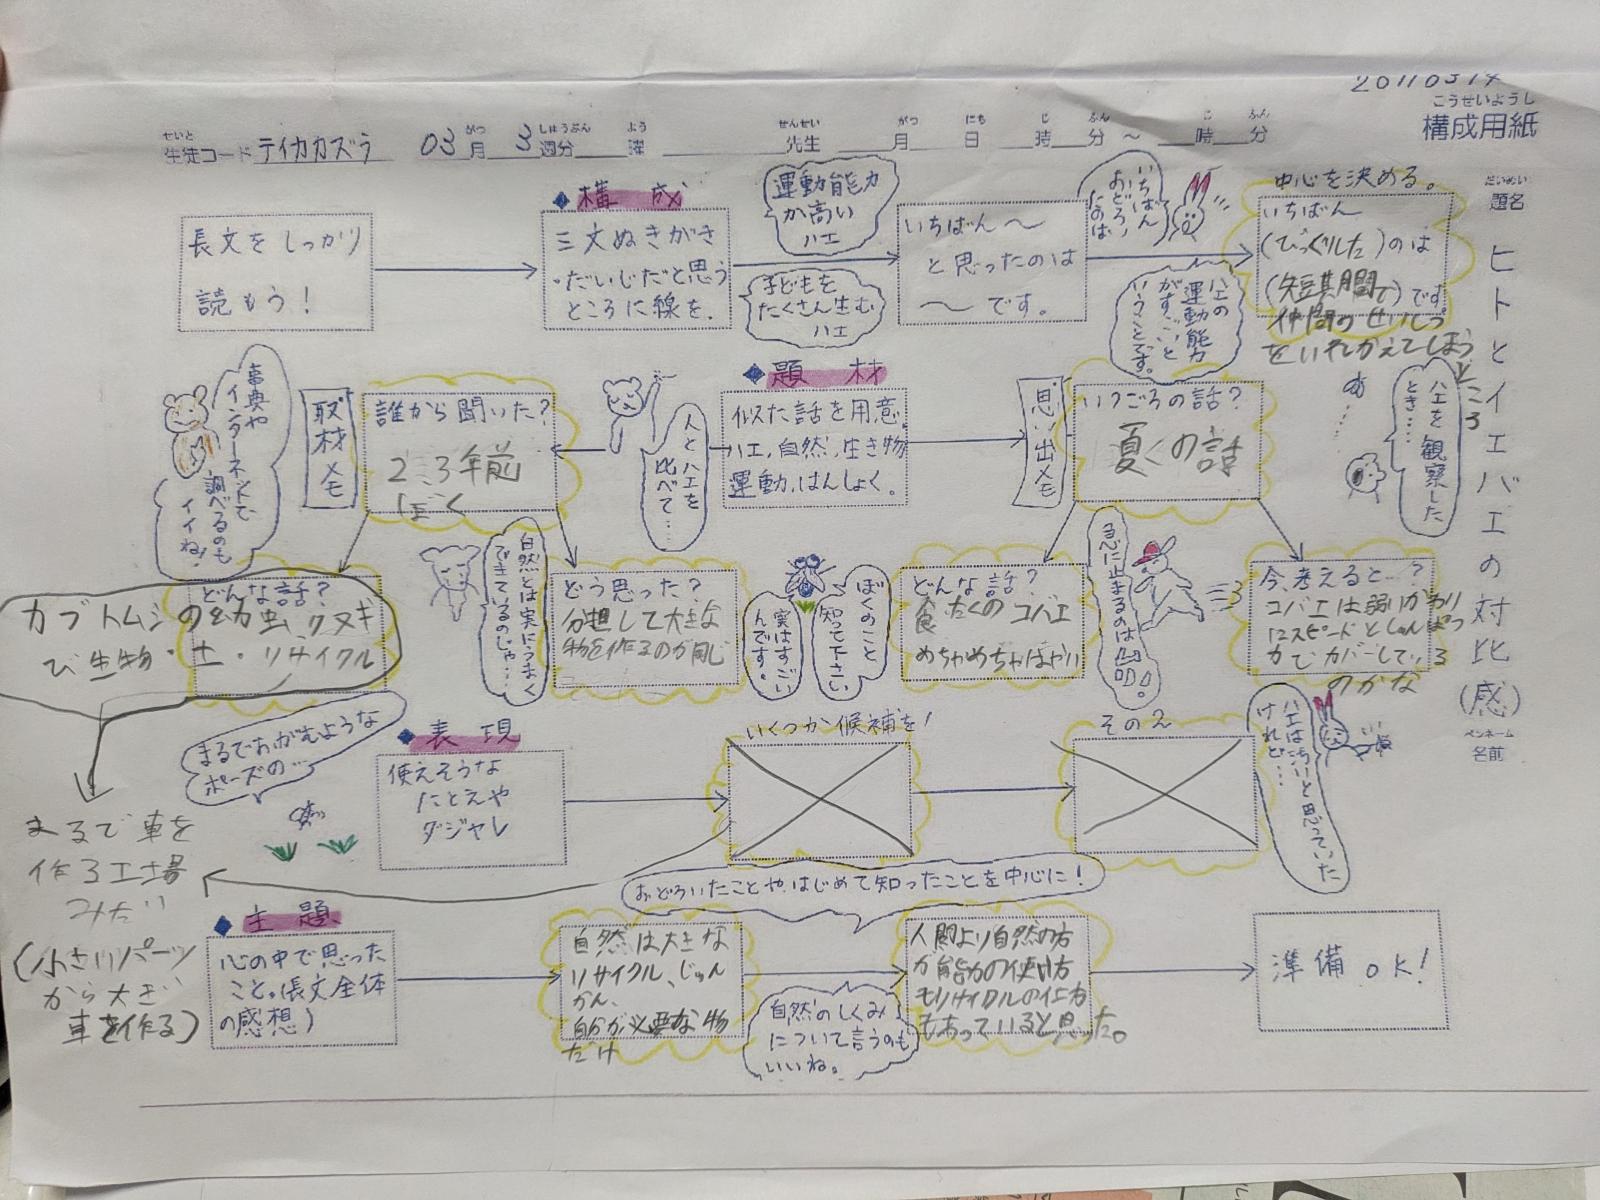 20110314
こうせいようし
構成用紙
せいと
生徒コード テイカカズラ 03 がつ 月 3 しゅうぶん 週分 よう 曜 せんせい 先生 がつ 月 にち 日 じ 時 ふん 分 ～ じ 時 ふん 分
だいめい
題名
ヒトとイエバエの対比(感)
ペンネーム
名前
長文をしっかり
読もう！
◆構成
三文ぬきがき
・だいじだと思う
ところに線を.
運動能力
が高い
ハエ
子どもを
たくさん生む
ハエ
いちばん～
と思ったのは
～です。
いちばん
おどろい
たのは
ハエの
運動能力
がすごいと
いうことです。
中心を決める。
いちばん
(びっくりした)のは
(短期間で)です
仲間のせいしつ
をいれかえてしまう
ところ
事典や
インターネットで
調べるのも
イイね！
取材メモ
誰から聞いた？
2.3年前
ぼく
人とハエを
比べて…
◆題材
似た話を用意.
ハエ,自然,生き物
運動,はんしょく。
思い出メモ
いつごろの話？
夏くの話
ハエを観察した
とき……
どんな話？
カブトムシの幼虫、クヌギ
び生物・土・リサイクル
自然とは実にうまく
できているのじゃ…
どう思った？
分担して大きな
物を作るのが同じ
実はすごい
んです。
ぼくのこと
知って下さい
どんな話？
食たくのコバエ
めちゃめちゃはやい
急に止まるのは
今,考えると…？
コバエは弱いかわり
にスピードとしゅんぱつ
力でカバーしている
のかな
まるでおがむような
ポーズの…
◆表現
使えそうな
たとえや
ダジャレ
いくつか候補を！
その2
ハエはこわいと思っていた
けれど…
まるで車を
作る工場
みたい
(小さいパーツ
から大きい
車を作る)
おどろいたことや,はじめて知ったことを中心に！
◆主題
心の中で思った
こと。(長文全体
の感想)
自然は大きな
リサイクル、じゅん
かん、
自分が必要な物
だけ
自然のしくみ
について言うのも
いいね。
人間より自然の方
が能力の使い方
もリサイクルの仕方
もあっていると思った。
準備OK！